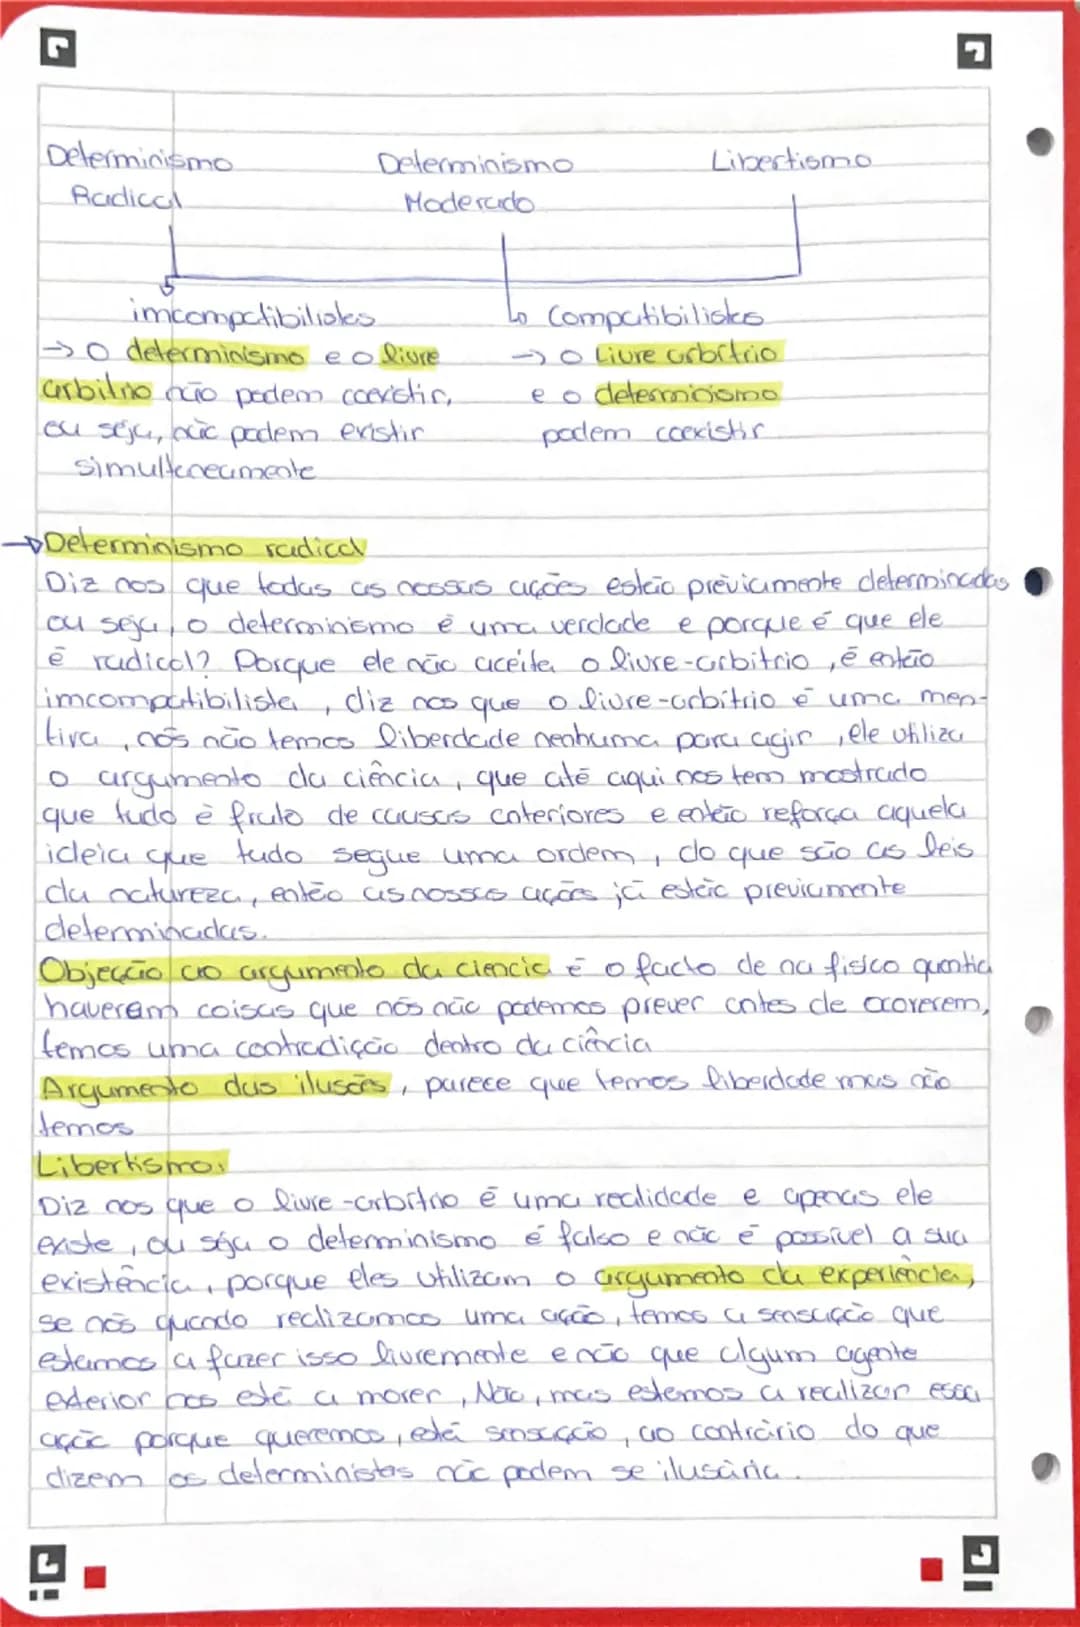 Determinismo Radical
Determinismo Moderado
Libertismo
imcompatibilistas
→ O determinismo e o livre
arbitrio não podem coexistir,
ou seja, não podem existir
simultaneamente
↳ Compatibilistas
→ O Livre arbítrio
e o determinismo
podem coexistir
→Determinismo radical
Diz nos que todas as nossas ações estão préviamente determinadas
ou seja, o determinismo é uma verdade e porque é que ele
é radical? Porque ele não aceita o livre-arbitrio, é então
imcompatibilista, diz nos que o livre-arbítrio é uma men-
tira, nós não temos liberdade nenhuma para agir, ele utiliza
o argumento da ciência, que até aqui nos tem mostrado
que tudo é fruto de causas anteriores e então reforça aquela
ideia que tudo segue uma ordem, do que são as leis
da natureza, então as nossas ações já estão previamente
determinadas.
Objecção ao argumento da ciencia é o facto de na fisica quantica
haveram coisas que nós não podemos prever antes de ocorerem,
temos uma contradição dentro da ciência
Argumento das ilusões, parece que temos liberdade mas não
temos
Libertismo:
Diz nos que o livre-arbitrio é uma realidade e apenas ele
existe, ou seja o determinismo é falso e não é possível a sua
existência, porque eles utilizam o argumento da experiência,
se nós quando realizamos uma ação, temos a sensação que
estamos a fazer isso livremente e não que algum agente
exterior nos está a mover, Não, mas estamos a realizar essa
ação porque queremos, está sensação, ao contrário do que
dizem os deterministas não podem se ilusária.